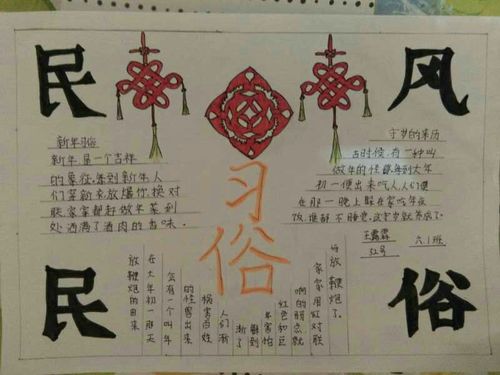 民
风
新年习俗
新年是一个吉祥
的象征,每到新年人
们穿新衣放爆竹,换对
联,家家都赶做年菜,到
处洒满了酒肉的香味。
守岁的来历
古时候,有一种叫
做年的怪兽,每到大年
初一便出来吃人,人们便
在那一晚上躲在家吃年夜
饭,谁都不睡觉,这
习
俗
王霖霖 六.1班
号
放鞭炮的由来
在大年初一那天
会有一个叫年
的怪兽出来
祸害百姓
人们渐
渐了
年害怕
红色和巨
响的弱点就
家家用红对联
与放鞭炮了。
民
俗